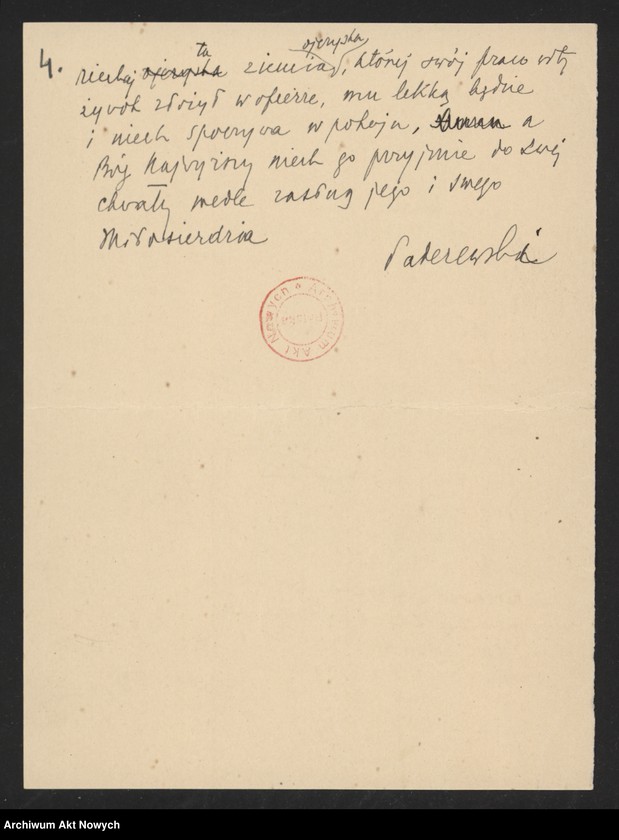 4.
niechaj ta ojczysta ziemia ojczysta, której swój pracowity
żywot złożył w ofierze, mu lekką będzie
i niech spoczywa w pokoju, a
Bóg Najwyższy niech go przyjmie do swej
chwały wedle zasług jego i swego
Miłosierdzia
Paderewski
Archiwum Akt Nowych
Archiwum Akt Nowych